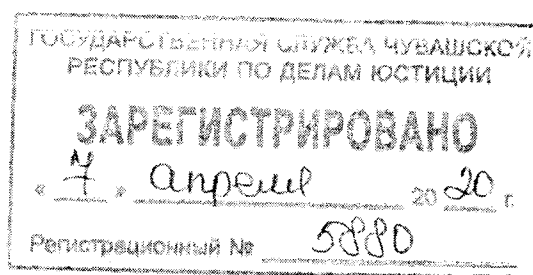 ГОСУДАРСТВЕННАЯ СЛУЖБА ЧУВАШСКОЙ
РЕСПУБЛИКИ ПО ДЕЛАМ ЮСТИЦИИ
ЗАРЕГИСТРИРОВАНО
« 7 » апреля 20 20 г.
Регистрационный № 5880